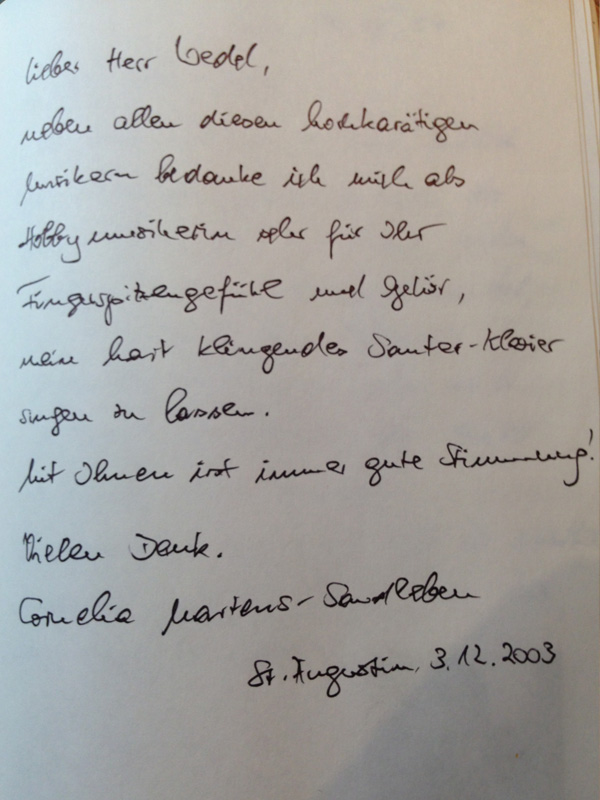 Lieber Herr Wedel,
neben allen diesen hochkarätigen
Musikern bedanke ich mich als
Hobbymusikerin sehr für Ihr
Fingerspitzengefühl und Gehör,
mein hart klingendes Sauter-Klavier
singen zu lassen.
Mit Ihnen ist immer gute Stimmung!
Vielen Dank.
Cornelia Martens-Sandleben
St. Augustin, 3.12.2003